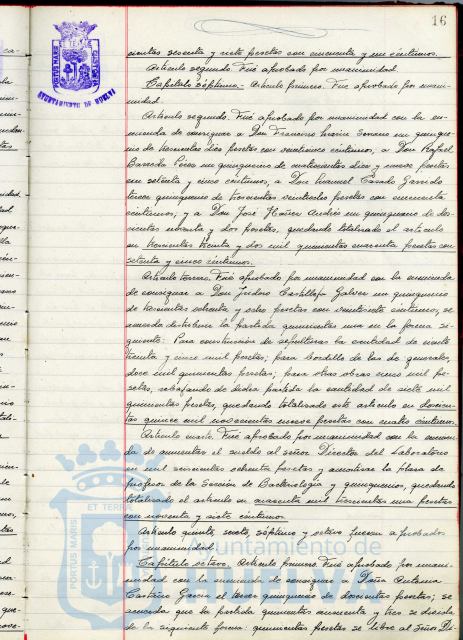 16
AYUNTAMIENTO DE HUELVA
cientas sesenta y siete pesetas con cincuenta y un céntimos.
Artículo segundo. Fué aprobado por unanimidad.
Capítulo séptimo.- Artículo primero. Fué aprobado por unani-
midad
Artículo segundo. Fué aprobado por unanimidad con la en-
mienda de consignar a Don Francisco Serrano un quinque-
nio de trescientas diez pesetas con céntimos, a Don Rafael
Barreda Pérez un quinquenio de cuatrocientas diez y nueve pesetas
con setenta y cinco céntimos, a Don Manuel Casado Garrido
tercer quinquenio de trescientas veintiocho pesetas con cincuenta
céntimos; y a Don José Núñez Andreu un quinquenio de dos-
cientas noventa y dos pesetas, quedando totalizado el artículo
en trescientas treinta y dos mil quinientas cuarenta pesetas con
setenta y cinco céntimos.
Artículo tercero. Fué aprobado por unanimidad con la enmienda
de consignar a Don Isidoro Castilleja Galvez un quinquenio
de trescientas ochenta y ocho pesetas con céntimos, se
acuerda distribuir la partida quinientas una en la forma si-
guiente: Para construcción de sepulturas la cantidad de
treinta y cinco mil pesetas; para bordillo de las de
doce mil quinientas pesetas; para otras obras cinco mil pe-
setas, rebajando de dicha partida la cantidad de siete mil
quinientas pesetas, quedando totalizado este artículo en doscien-
tas quince mil novecientas nueve pesetas con cuatro céntimos.
Artículo cuarto. Fué aprobado por unanimidad con la enmien-
da de aumentar el sueldo al señor Director del Laboratorio
en mil seiscientas ochenta pesetas y amortizar la plaza de
profesor de la Sección de Bacteriología y quinquenios, quedando
totalizado el artículo en cuarenta mil trescientas una pesetas
con noventa y siete céntimos.
Artículo quinto, sexto, séptimo y octavo fueron aprobados
por unanimidad.
Capítulo octavo. Artículo primero. Fué aprobado por unani-
midad con la enmienda de consignar a Doña Antonia
Castaño García el tercer quinquenio de doscientas pesetas; se
acuerda que la partida quinientas cincuenta y tres se divida
de la siguiente forma: quinientas pesetas se libre al señor Di-
PORTUS MARIS
ET TERR
Ayuntamiento de